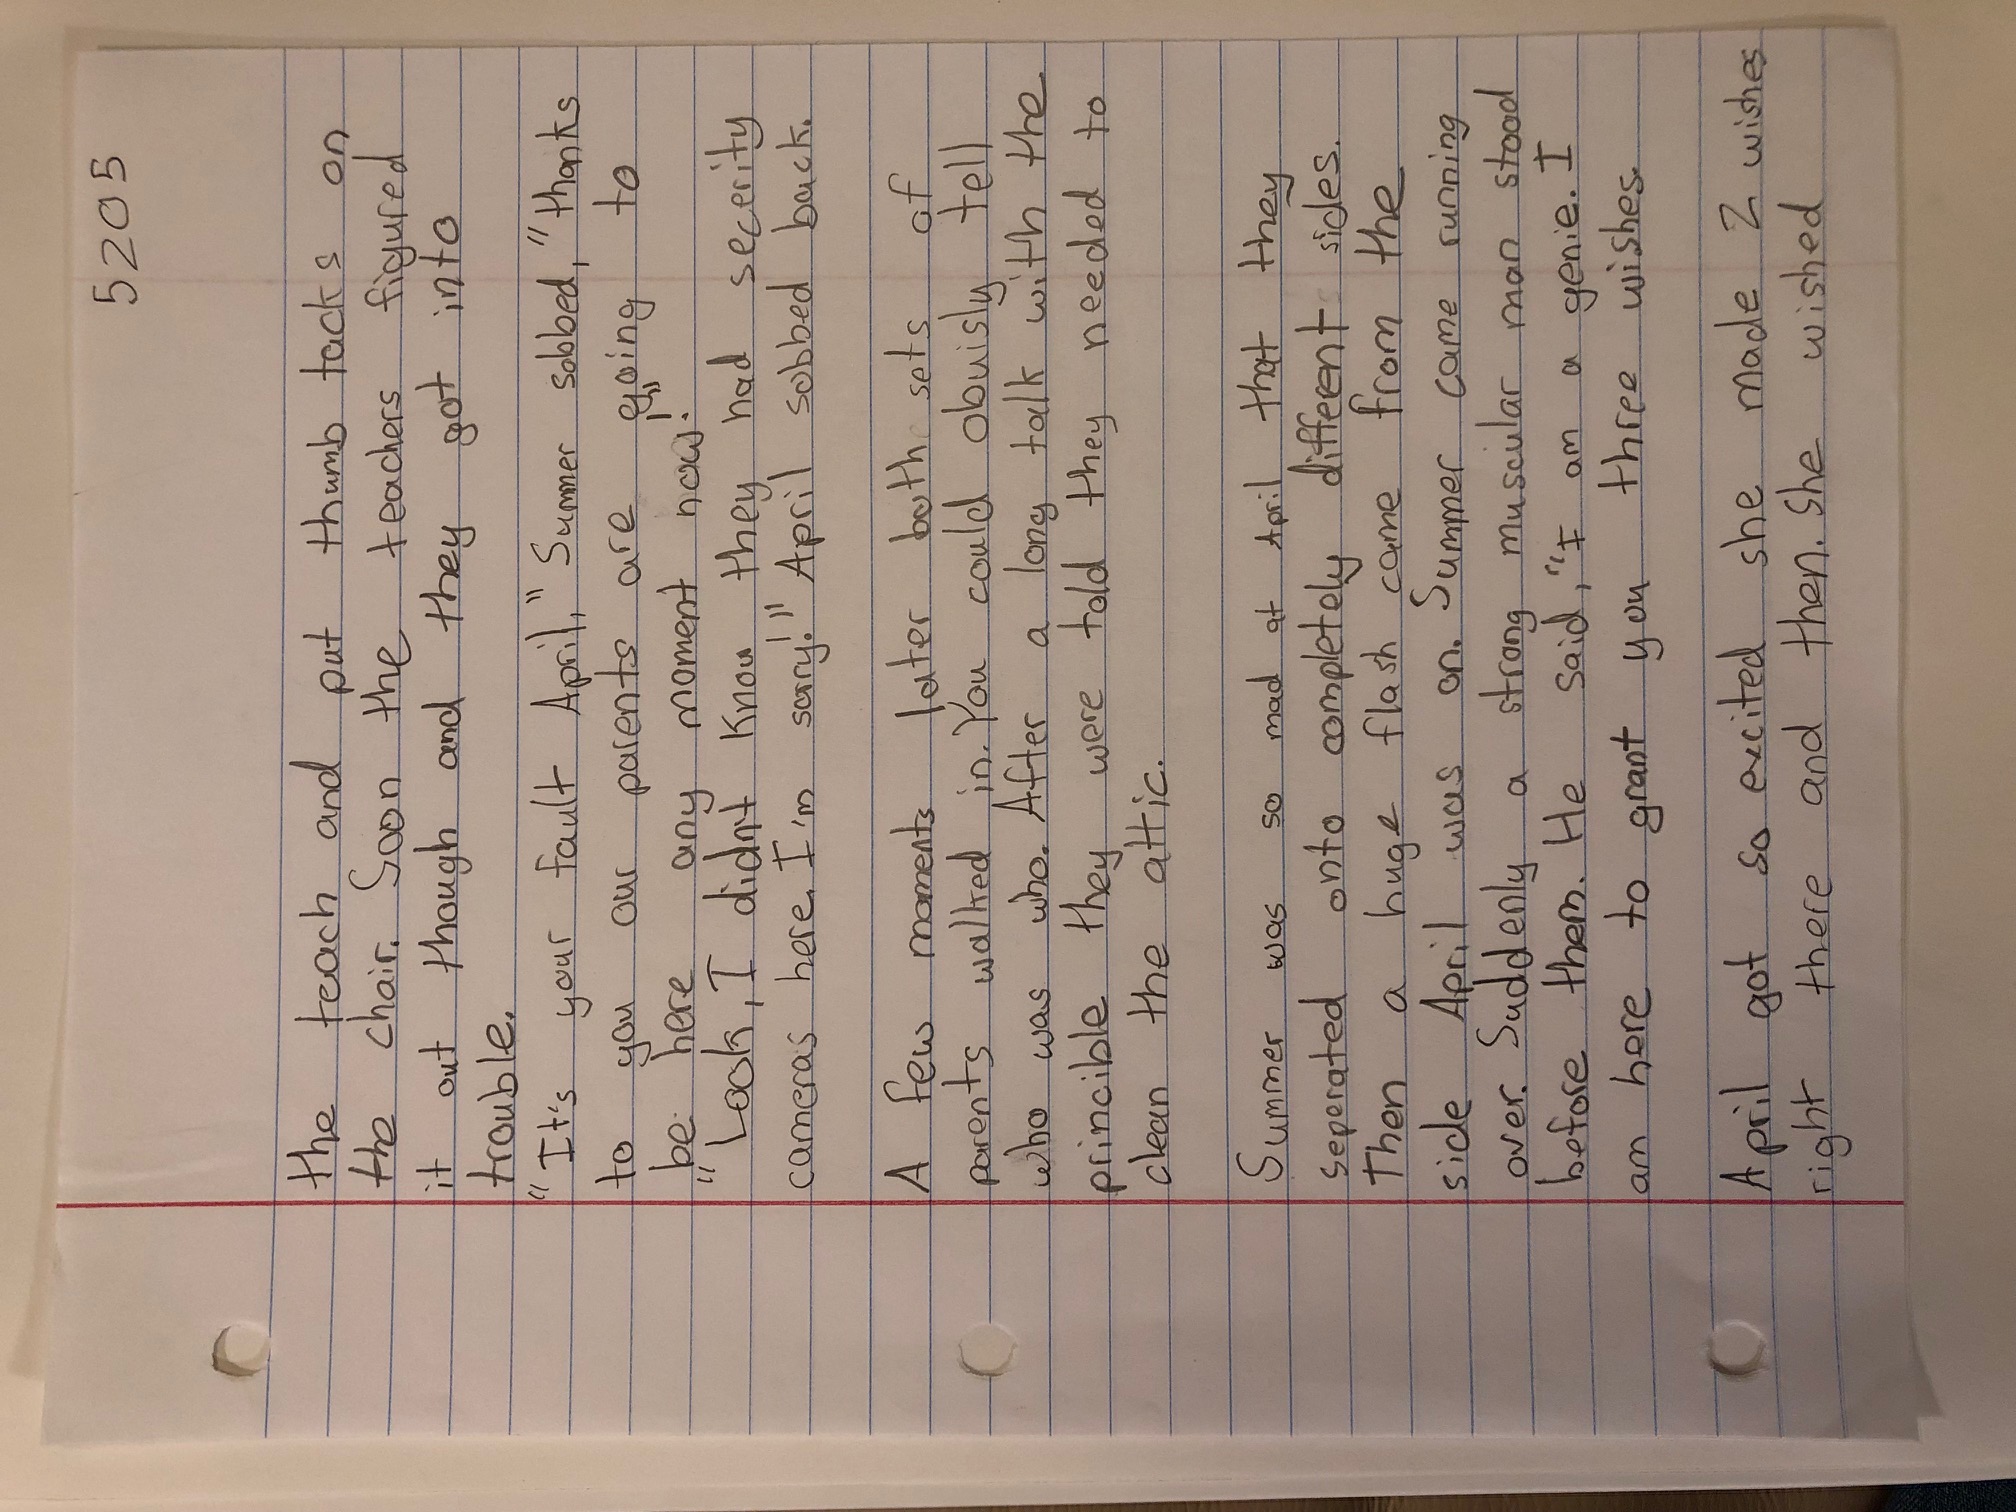 5205
the teach and put thumb tacks on
the chair. Soon the teachers figured
it out though and they got into
trouble.
"It's your fault April," Summer sobbed, "thanks
to you our parents are going to
be here any moment now!"
"Look, I didn't know they had secerity
cameras here. I'm sorry!" April sobbed back.
A few moments later both sets of
parents walked in. You could obuisly tell
who was who. After a long talk with the
princible they were told they needed to
clean the attic.
Summer was so mad at April that they
seperated onto completely different sides.
Then a huge flash came from the
side April was on. Summer came running
over. Suddenly a strong muscular man stood
before them. He said, "I am a genie. I
am here to grant you three wishes.
April got so excited she made 2 wishes
right there and then. She wished